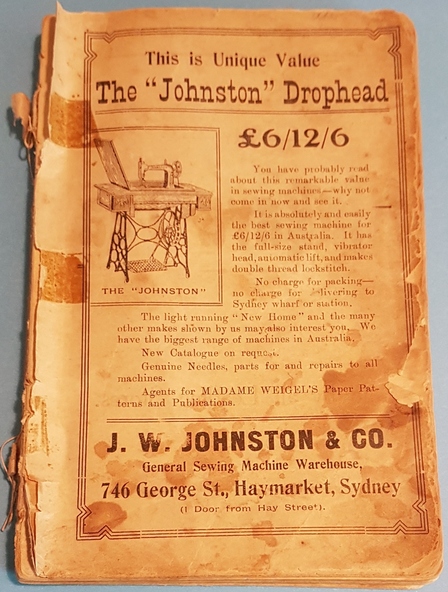 This is Unique Value
The "Johnston" Drophead
£6/12/6
You have probably read
about this remarkable value
in sewing machines—why not
come in now and see it.
It is absolutely and easily
the best sewing machine for
£6/12/6 in Australia. It has
the full-size stand, vibrator
head, automatic lift, and makes
double thread lockstitch.
No charge for packing—
no charge for delivering to
Sydney wharf or station.
THE "JOHNSTON"
The light running "New Home" and the many
other makes shown by us may also interest you. We
have the biggest range of machines in Australia.
New Catalogue on request.
Genuine Needles, parts for and repairs to all
machines.
Agents for MADAME WEIGEL'S Paper Pat-
terns and Publications.
J. W. JOHNSTON & CO.
General Sewing Machine Warehouse,
746 George St., Haymarket, Sydney
(1 Door from Hay Street).